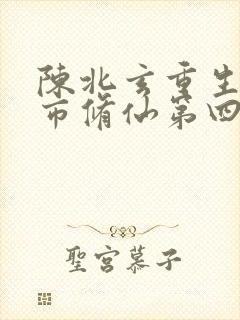 陳北玄重生
市脩仙第四
聖宮慕子